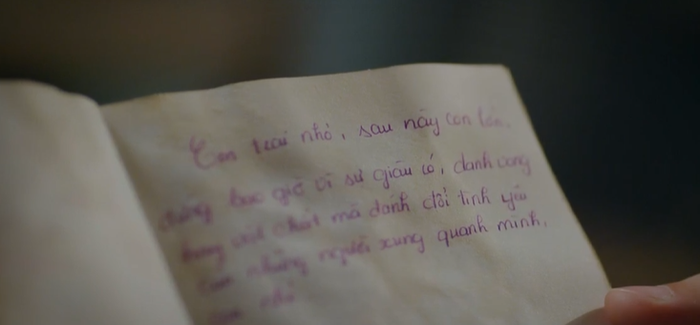 Con trai nhỏ, sau này con lớn,
đừng bao giờ vì sự giàu có, danh vọng
chất mà đánh đổi tình yêu
những người xung quanh mình.
nhé